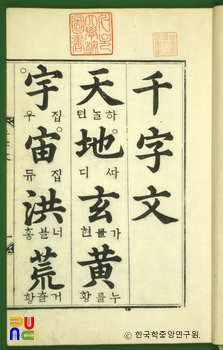 千字文
天地玄黃
하늘 텬
싸 디
가믈 현
누를 황
宇宙洪荒
집 우
집 듀
너블 홍
거츨 황
한국학중앙연구원